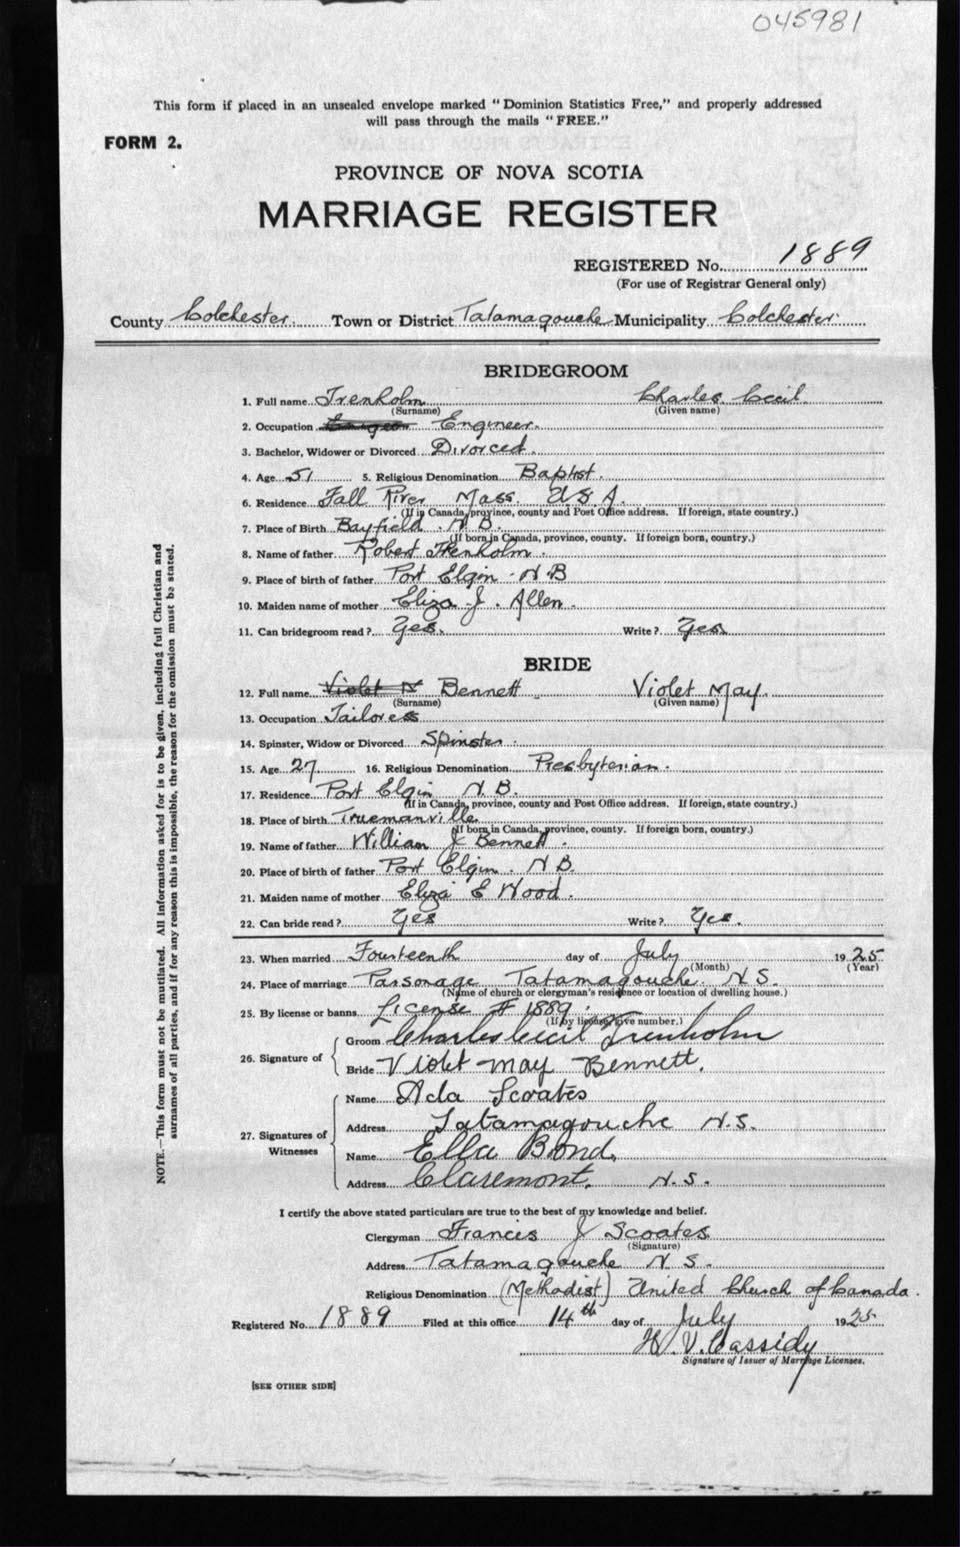 045981
This form if placed in an unsealed envelope marked "Dominion Statistics Free," and properly addressed
will pass through the mails "FREE."
FORM 2.
PROVINCE OF NOVA SCOTIA
MARRIAGE REGISTER
REGISTERED No. 1889
(For use of Registrar General only)
County Colchester. Town or District Tatamagouche Municipality Colchester.
BRIDEGROOM
1. Full name Trenholm Charles Cecil
(Surname) (Given name)
2. Occupation Engineer.
3. Bachelor, Widower or Divorced Divorced.
4. Age 51 5. Religious Denomination Baptist.
6. Residence Fall River Mass. U.S.A.
(If in Canada, province, county and Post Office address. If foreign, state country.)
7. Place of Birth Bayfield. N.B.
(If born in Canada, province, county. If foreign born, country.)
8. Name of father Robert Trenholm.
9. Place of birth of father Port Elgin. N B
10. Maiden name of mother Eliza J. Allen.
11. Can bridegroom read? Yes. Write? Yes.
BRIDE
12. Full name Violet B Bennett Violet May.
(Surname) (Given name)
13. Occupation Tailoress
14. Spinster, Widow or Divorced Spinster.
15. Age 27 16. Religious Denomination Presbyterian.
17. Residence Port Elgin N.B.
(If in Canada, province, county and Post Office address. If foreign, state country.)
18. Place of birth Truemanville
(If born in Canada, province, county. If foreign born, country.)
19. Name of father William J Bennett.
20. Place of birth of father Port Elgin. N B.
21. Maiden name of mother Eliza E Wood.
22. Can bride read? Yes Write? Yes.
23. When married Fourteenth day of July 1925
(Month) (Year)
24. Place of marriage Parsonage Tatamagouche. N S.
(Name of church or clergyman's residence or location of dwelling house.)
25. By license or banns License # 1889
(If by license, give number.)
26. Signature of
Groom Charles Cecil Trenholm
Bride Violet May Bennett.
27. Signatures of Witnesses
Name Ada Scoates
Address Tatamagouche N.S.
Name Ella Bond,
Address Claremont. N.S.
I certify the above stated particulars are true to the best of my knowledge and belief.
Clergyman Francis J Scoates
(Signature)
Address Tatamagouche N.S.
Religious Denomination (Methodist) United Church of Canada.
Registered No. 1889 Filed at this office 14th day of July 1925
H. V. Cassidy
Signature of Issuer of Marriage Licenses.
[SEE OTHER SIDE]
NOTE.—This form must not be mutilated. All information asked for is to be given, including full Christian and
surnames of all parties, and if for any reason this is impossible, the reason for the omission must be stated.